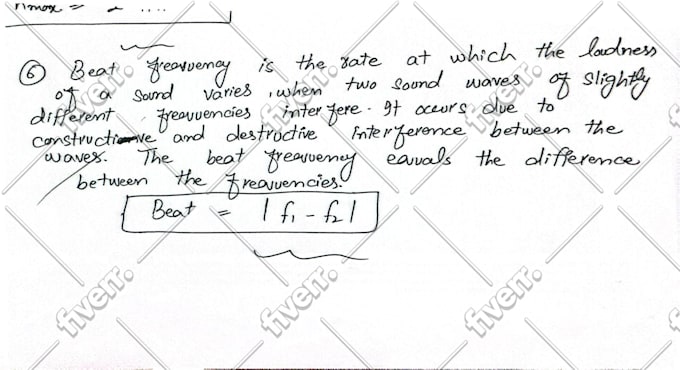 nmax = 2 ....
⑥ Beat frequency is the rate at which the loudness
of a sound varies, when two sound waves of slightly
different frequencies interfere. It occurs due to
constructive and destructive interference between the
waves. The beat frequency equals the difference
between the frequencies.
Beat = | f₁ - f₂ |
fiverr.